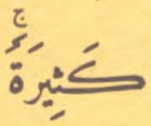 كَثِيرَةٌ ۚ